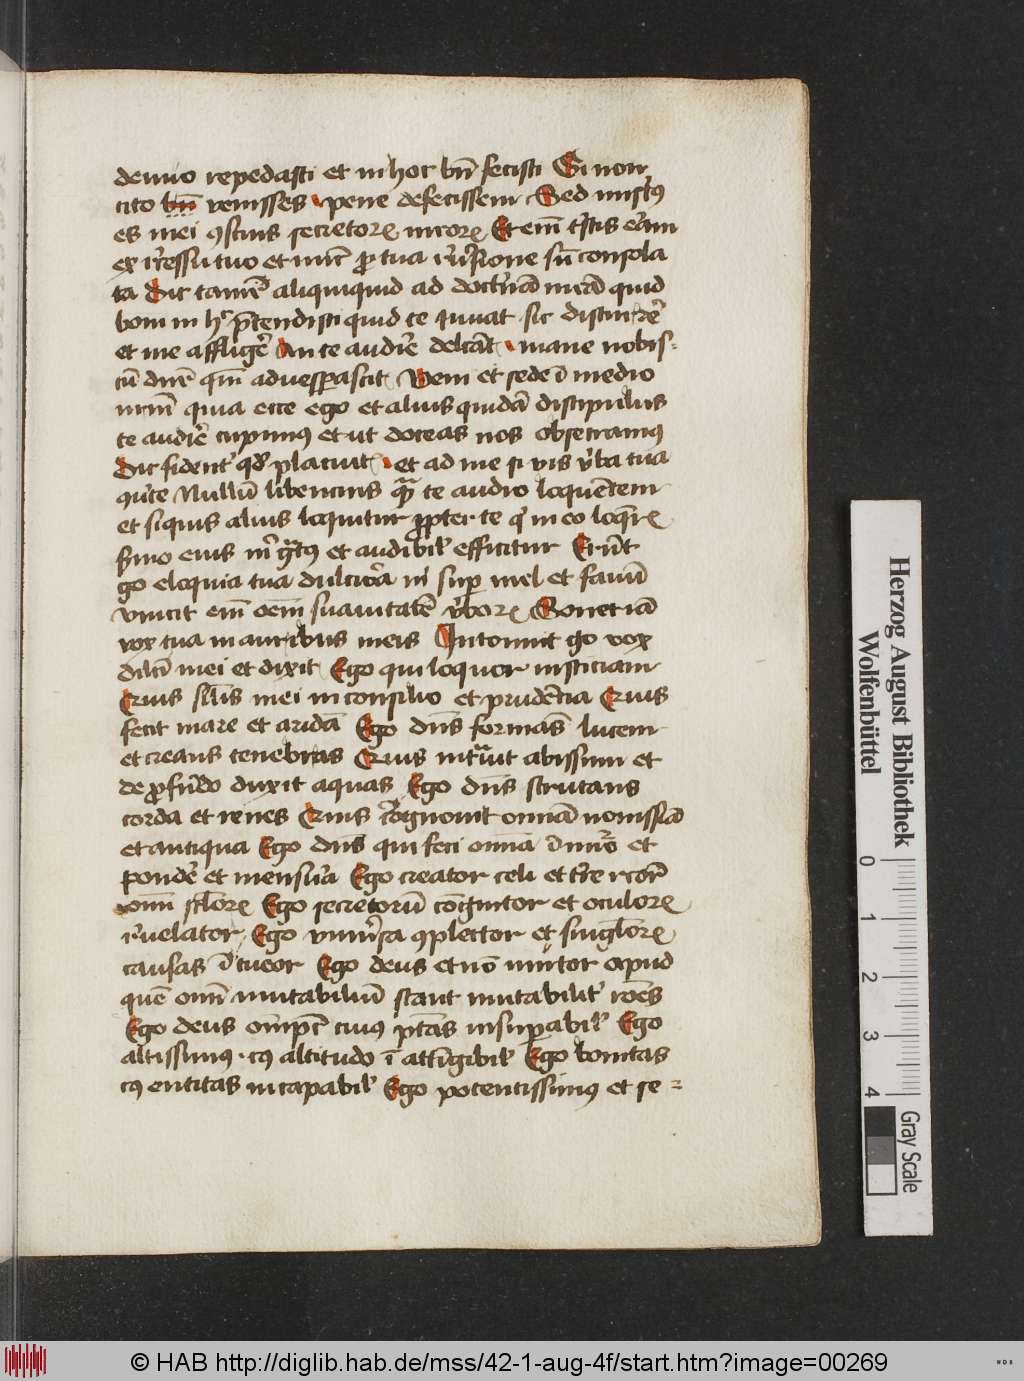 denuo repedasti et in hoc bn̄ fecisti Si non
cito bn̄ venisses pene defecissem Sed iustꝰ
es mei ꝯscius secretoꝝ in coꝝ Et em̄ tͥstis eram
ex recessu tuo et nūc ꝓ tua sū consola
ta Dic tamē aliquiquid ad doctͥnā meā quid
boni in hͦ p̄tendisti quid te iuuat sic
et me affligeͤ An te audiͤ delcāt mane nobis⸗
cū dn̄e qm̄ aduesperascit Veni et sede ī medio
nr̄m quia ecce ego et alius quidā discipulus
te audiͤ cupimꝰ et ut doceas nos obsecramꝰ
Dic fident̓ qd̓ placuit et ad me si vis v̓ba tua
Nullū libencius qᷓ te audio loquētem
et siquis alius loquitur propter te qͥ in eo loq̄rͤ
s̓mo eius m̓ gͣtꝰ et audibil̓ efficitur Erūt
go eloquia tua dulciora m̓ suꝑ mel et fauū
vincit em̄ oēm suauitatē v̓boꝝ Sonet iā
vox tua in auribus meis Intonuit go vox
dilc̄i mei et dixit Ego qui loquor iusticiam
Cuius mei in consilio et prudēcia Cuius
fecit mare et aridā Ego dn̄s formās lucem
et creans tenebras Cuius abissum et
de ꝓfūdo duxit aquas Ego dn̄s scrutans
corda et renes Cuius cognouit omnīa nouissīa
et antiqua Ego dn̄s qui feci omnīa ī et
pondeͤ et mensura Ego creator celi et t̓re
omī Ego secretorū cōgnitor et oculoꝝ
reuelator Ego vniūsa ꝯplector et singloꝝ
causas ītueor Ego deus et nō mutor apud
quē omī mutabiliū stant mutabilit̓
Ego deus omīpc̄ cuius ptās insuꝑabil̓ Ego
altissimꝰ cꝰ altitudo ī attīgibil̓ Ego bonitas
cꝰ entitas incapabil̓ Ego potentissimꝰ et se⸗
Herzog August Bibliothek
Wolfenbüttel
0 1 2 3 4
Gray Scale
© HAB http://diglib.hab.de/mss/42-1-aug-4f/start.htm?image=00269